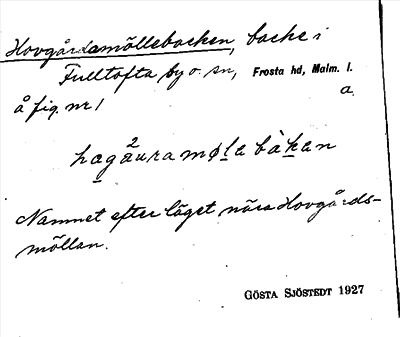 Hovgårdsmöllebacken, backe i
Fulltofta by o. sn, Frosta hd, Malm. l.
å fig. nr 1 a.
hagåuramøla bàkan
Namnet efter läget nära Hovgårds-
möllan.
GÖSTA SJÖSTEDT 1927